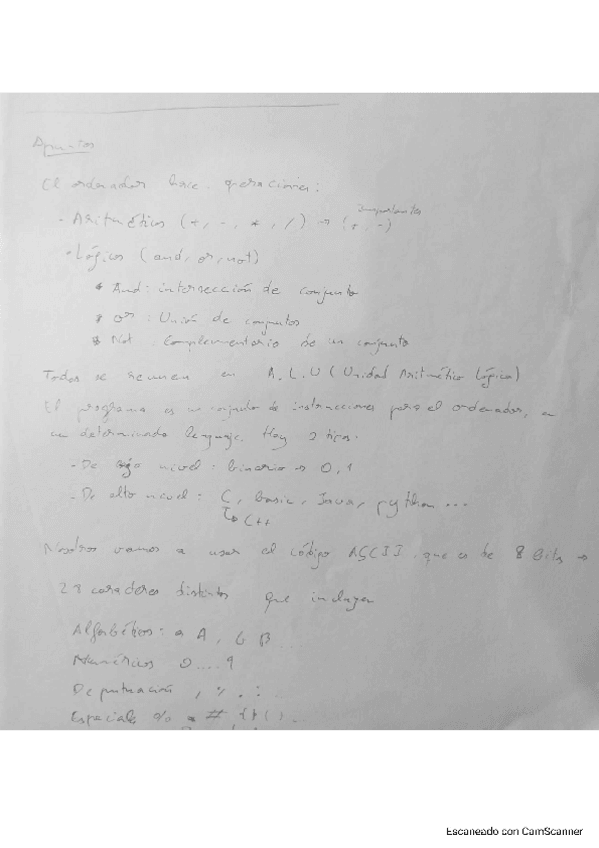 Apuntes
El ordenador hace operaciones:
- Aritméticos (+, -, *, /) → (+, -) importantes
- Lógicos (and, or, not)
And: intersección de conjunto
or: Unión de conjuntos
Not: Complementario de un conjunto
Todos se reunen en A.L.U (Unidad Aritmético Lógica)
El programa es un conjunto de instrucciones para el ordenador, en
un determinado lenguaje. Hay 2 tipos.
- De bajo nivel: binario → 0,1
- De alto nivel: C, basic, Java, python ...
↳ C++
Nosotros vamos a usar el código ASCII que es de 8 Bits →
28 caracteres distintos que incluyen
Alfabéticos: a A, b B...
Numéricos 0....9
De puntuación , . :
Especiales % # { } ( ) ..
Escaneado con CamScanner